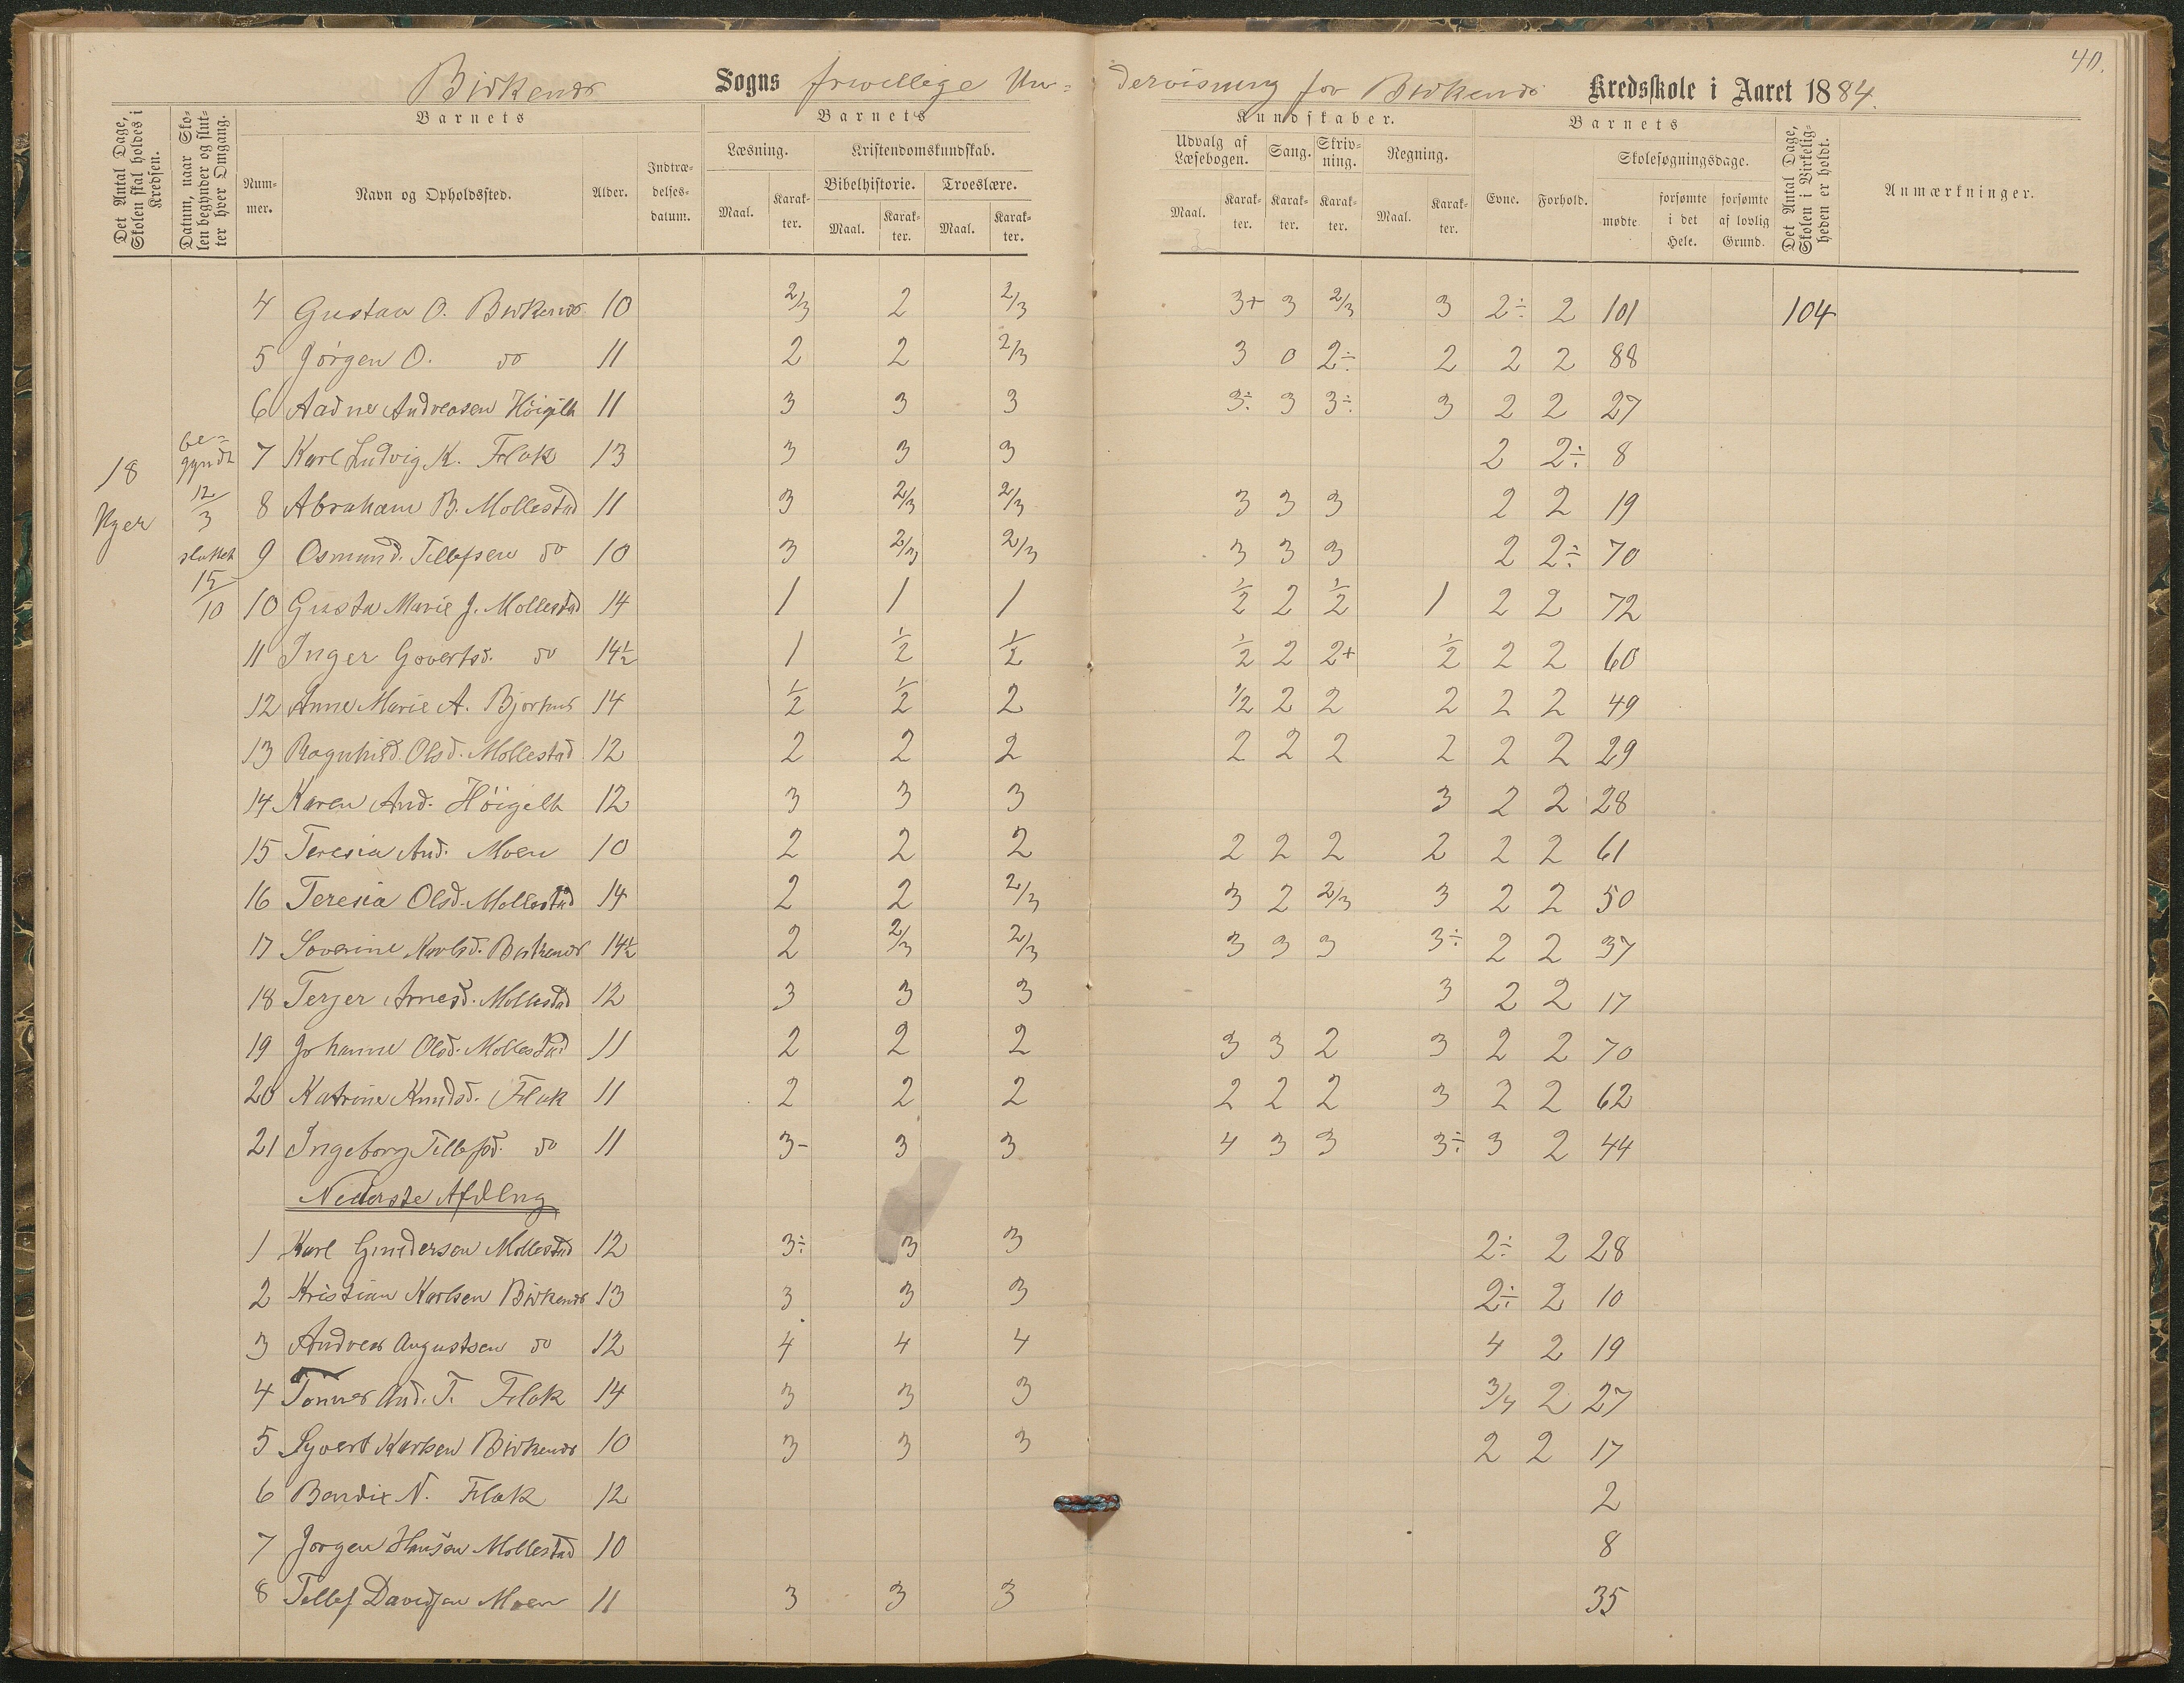 40.
Birkenes Sogns frivillige Un= dervisning for Birkenes Kredsskole i Aaret 1884.
Det Antal Dage, Skolen skal holdes i Kredsen.
Datum, naar Skolen begynder og slutter hver Omgang.
Barnets
Nummer.
Navn og Opholdssted.
Alder.
Indtrædelsesdatum.
Barnets
Læsning.
Maal.
Karakter.
Kristendomskundskab.
Bibelhistorie.
Maal.
Karakter.
Troeslære.
Maal.
Karakter.
Kundskaber.
Udvalg af Læsebogen.
Maal.
Karakter.
Sang.
Karakter.
Skrivning.
Karakter.
Regning.
Maal.
Karakter.
Barnets
Evne.
Forhold.
Skolesøgningsdage.
mødte.
forsømte i det Hele.
forsømte af lovlig Grund.
Det Antal Dage, Skolen i Virkeligheden er holdt.
Anmærkninger.
18 Uger
be= gyndt 12/3 sluttet 15/10
4 Gustav O. Birkenes 10 2/3 2 2/3 3+ 3 2/3 3 2÷ 2 101 104
5 Jörgen O. do 11 2 2 2/3 3 0 2÷ 2 2 2 88
6 Aadne Andreasen Höigilt 11 3 3 3 3÷ 3 3÷ 3 2 2 27
7 Karl Ludvig K. Flak 13 3 3 3 2 2÷ 8
8 Abraham B. Mollestad 11 3 2/3 2/3 3 3 3 2 2 19
9 Osmund Tellefsen do 10 3 2/3 2/3 3 3 3 2 2÷ 70
10 Gusta Marie J. Mollestad 14 1 1 1 1/2 2 1/2 1 2 2 72
11 Inger Govertsd. do 14½ 1 1/2 1/2 1/2 2 2+ 1/2 2 2 60
12 Anne Marie A. Bjorhus 14 1/2 1/2 2 1/2 2 2 2 2 2 49
13 Ragnhild Olsd. Mollestad 12 2 2 2 2 2 2 2 2 2 29
14 Karen And. Höigelt 12 3 3 3 3 2 2 28
15 Teresia And. Moen 10 2 2 2 2 2 2 2 2 2 61
16 Teresia Olsd. Mollestad 14 2 2 2/3 3 2 2/3 3 2 2 50
17 Soverine Karlsd. Birkenes 14½ 2 2/3 2/3 3 3 3 3÷ 2 2 37
18 Terjer Arnesd. Mollestad 12 3 3 3 3 2 2 17
19 Johanne Olsd. Mollestad 11 2 2 2 3 3 2 3 2 2 70
20 Katrine Knudsd. Flak 11 2 2 2 2 2 2 3 2 2 62
21 Ingeborg Tellefsd. do 11 3- 3 3 4 3 3 3÷ 3 2 44
Nederste Afdlng
1 Karl Gundersen Mollestad 12 3÷ 3 3 2÷ 2 28
2 Kristian Karlsen Birkenes 13 3 3 3 2÷ 2 10
3 Andreas Augustsen do 12 4 4 4 4 2 19
4 Tönnes And. T. Flak 14 3 3 3 3/4 2 27
5 Syvert Karlsen Birkenes 10 3 3 3 2 2 17
6 Bendix N. Flak 12 2
7 Jorgen Hansen Mollestad 10 8
8 Tellef Davidsen Moen 11 3 3 3 35